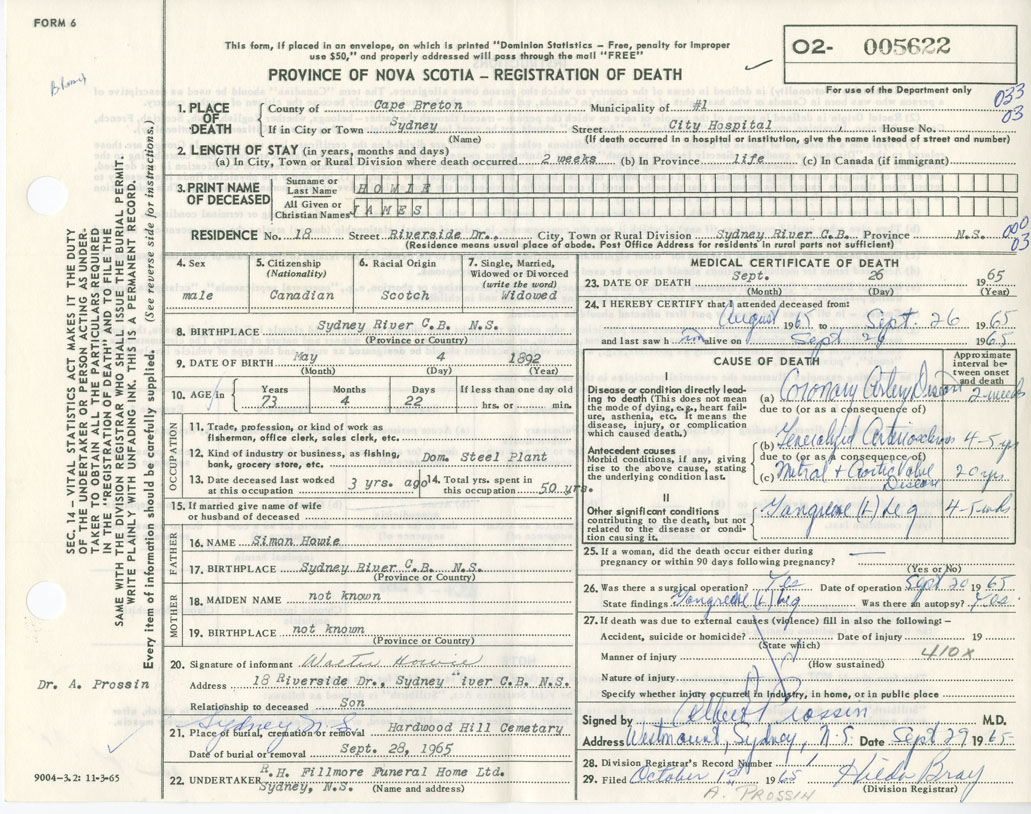 FORM 6
This form, if placed in an envelope, on which is printed "Dominion Statistics – Free, penalty for improper
use $50," and properly addressed will pass through the mail "FREE"
PROVINCE OF NOVA SCOTIA – REGISTRATION OF DEATH
O2- 005622
For use of the Department only
033
03
SEC. 14 – VITAL STATISTICS ACT MAKES IT THE DUTY
OF THE UNDERTAKER OR PERSON ACTING AS UNDER-
TAKER TO OBTAIN ALL THE PARTICULARS REQUIRED
IN THE "REGISTRATION OF DEATH" AND TO FILE IT WITH THE
SAME WITH THE DIVISION REGISTRAR WHO SHALL ISSUE THE BURIAL PERMIT.
WRITE PLAINLY WITH UNFADING INK. THIS IS A PERMANENT RECORD.
Every item of information should be carefully supplied. (See reverse side for instructions.)
1. PLACE OF DEATH County of Cape Breton Municipality of #1
If in City or Town Sydney Street City Hospital House No.
(Name) (If death occurred in a hospital or institution, give the name instead of street and number)
2. LENGTH OF STAY (in years, months and days)
(a) In City, Town or Rural Division where death occurred 2 weeks (b) In Province life (c) In Canada (if immigrant)
3. PRINT NAME OF DECEASED Surname or Last Name HOWIE
All Given or Christian Names JAMES
RESIDENCE No. 18 Street Riverside Dr., City, Town or Rural Division Sydney River C.B. Province N.S.
(Residence means usual place of abode. Post Office Address for residents in rural parts not sufficient)
000
03
4. Sex male
5. Citizenship (Nationality) Canadian
6. Racial Origin Scotch
7. Single, Married, Widowed or Divorced (write the word) Widowed
8. BIRTHPLACE Sydney River C.B. N.S.
(Province or Country)
9. DATE OF BIRTH May 4 1892
(Month) (Day) (Year)
10. AGE in Years 73 Months 4 Days 22 If less than one day old hrs. or min.
OCCUPATION
11. Trade, profession, or kind of work as
fisherman, office clerk, sales clerk, etc.
12. Kind of industry or business, as fishing,
bank, grocery store, etc. Dom. Steel Plant
13. Date deceased last worked at this occupation 3 yrs. ago 14. Total yrs. spent in this occupation 50 yrs.
15. If married give name of wife
or husband of deceased
FATHER
16. NAME Simon Howie
17. BIRTHPLACE Sydney River C.B. N.S.
(Province or Country)
MOTHER
18. MAIDEN NAME not known
19. BIRTHPLACE not known
(Province or Country)
20. Signature of informant Walter Howie
Address 18 Riverside Dr., Sydney iver C.B. N.S.
Relationship to deceased Son
Sydney N.S.
21. Place of burial, cremation or removal Hardwood Hill Cemetary
Date of burial or removal Sept. 28, 1965
22. UNDERTAKER R.H. Fillmore Funeral Home Ltd.
Sydney, N.S. (Name and address)
Dr. A. Prossin
9004-3.2: 11-3-65
MEDICAL CERTIFICATE OF DEATH
23. DATE OF DEATH Sept. 26 1965
(Month) (Day) (Year)
24. I HEREBY CERTIFY that I attended deceased from:
August 1965 to Sept. 26 1965
and last saw him alive on Sept 26 1965
CAUSE OF DEATH
Approximate interval between onset and death
I
Disease or condition directly lead-
ing to death (This does not mean
the mode of dying, e.g., heart fail-
ure, asthenia, etc. It means the
disease, injury, or complication
which caused death.)
(a) Coronary Artery Disease 2-weeks
due to (or as a consequence of)
Antecedent causes
Morbid conditions, if any, giving
rise to the above cause, stating
the underlying condition last.
(b) Generalized Arteriosclerosis 4-5 yrs
due to (or as a consequence of)
(c) Mitral + Aortic Valve Disease 20 yrs.
II
Other significant conditions
contributing to the death, but not
related to the disease or condi-
tion causing it.
Gangrene (L) leg 4-5-wks
25. If a woman, did the death occur either during
pregnancy or within 90 days following pregnancy?
(Yes or No)
26. Was there a surgical operation? Yes Date of operation Sept 20 1965
State findings Gangrene (L) leg Was there an autopsy? Yes
27. If death was due to external causes (violence) fill in also the following: –
Accident, suicide or homicide? Date of injury 19
(State which)
Manner of injury 410X
(How sustained)
Nature of injury
Specify whether injury occurred in industry, in home, or in public place
Signed by Albert Prossin M.D.
Address Westmount, Sydney, N.S. Date Sept 29 1965
28. Division Registrar's Record Number
29. Filed October 1st 1965 Hilda Bray
(Division Registrar)
A. PROSSIN